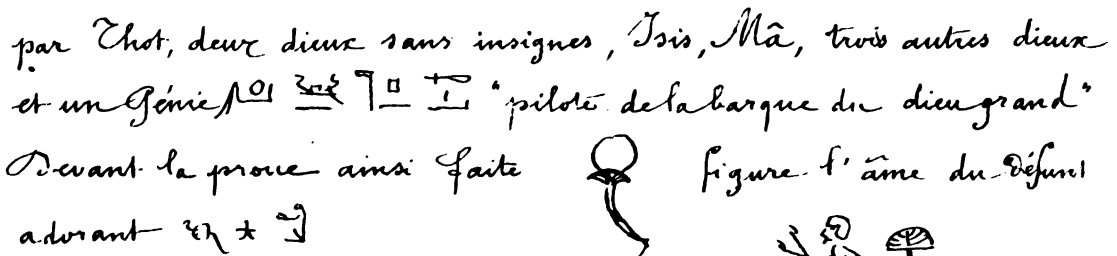 par Thot, deux dieux sans insignes, Isis, Mâ, trois autres dieux
et un Génie "pilote de la barque du dieu grand"
Devant la proue ainsi faite figure l'âme du Défunt
adorant